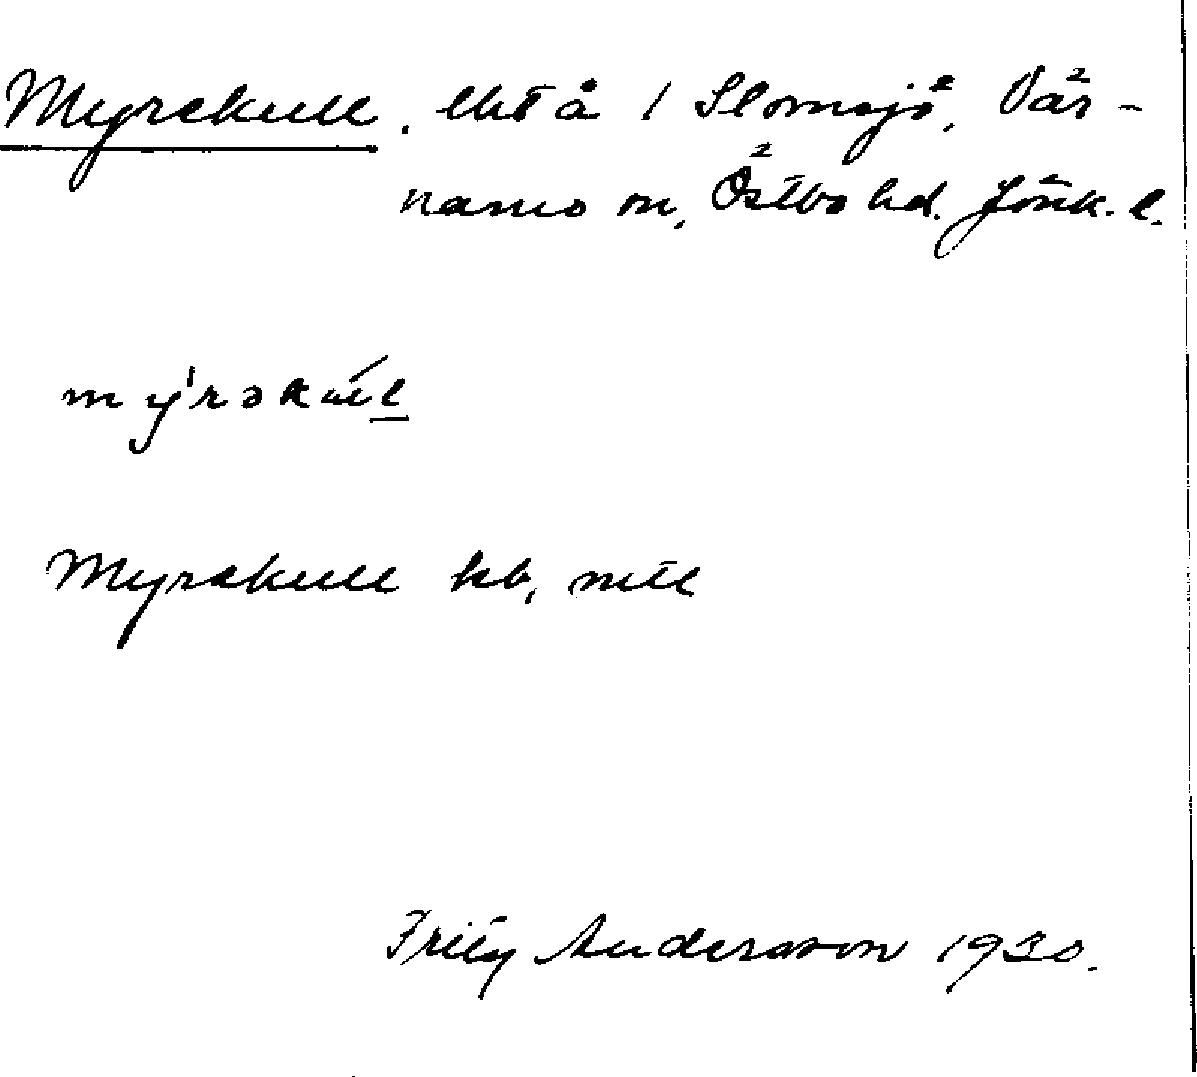 Myrekull, lht å 1 Slomsjö, Vär-
namo sn, Östbo hd. Jönk. l.
my'rəkúl
Myrekull kb, mtl
Fritz Andersson 1930.